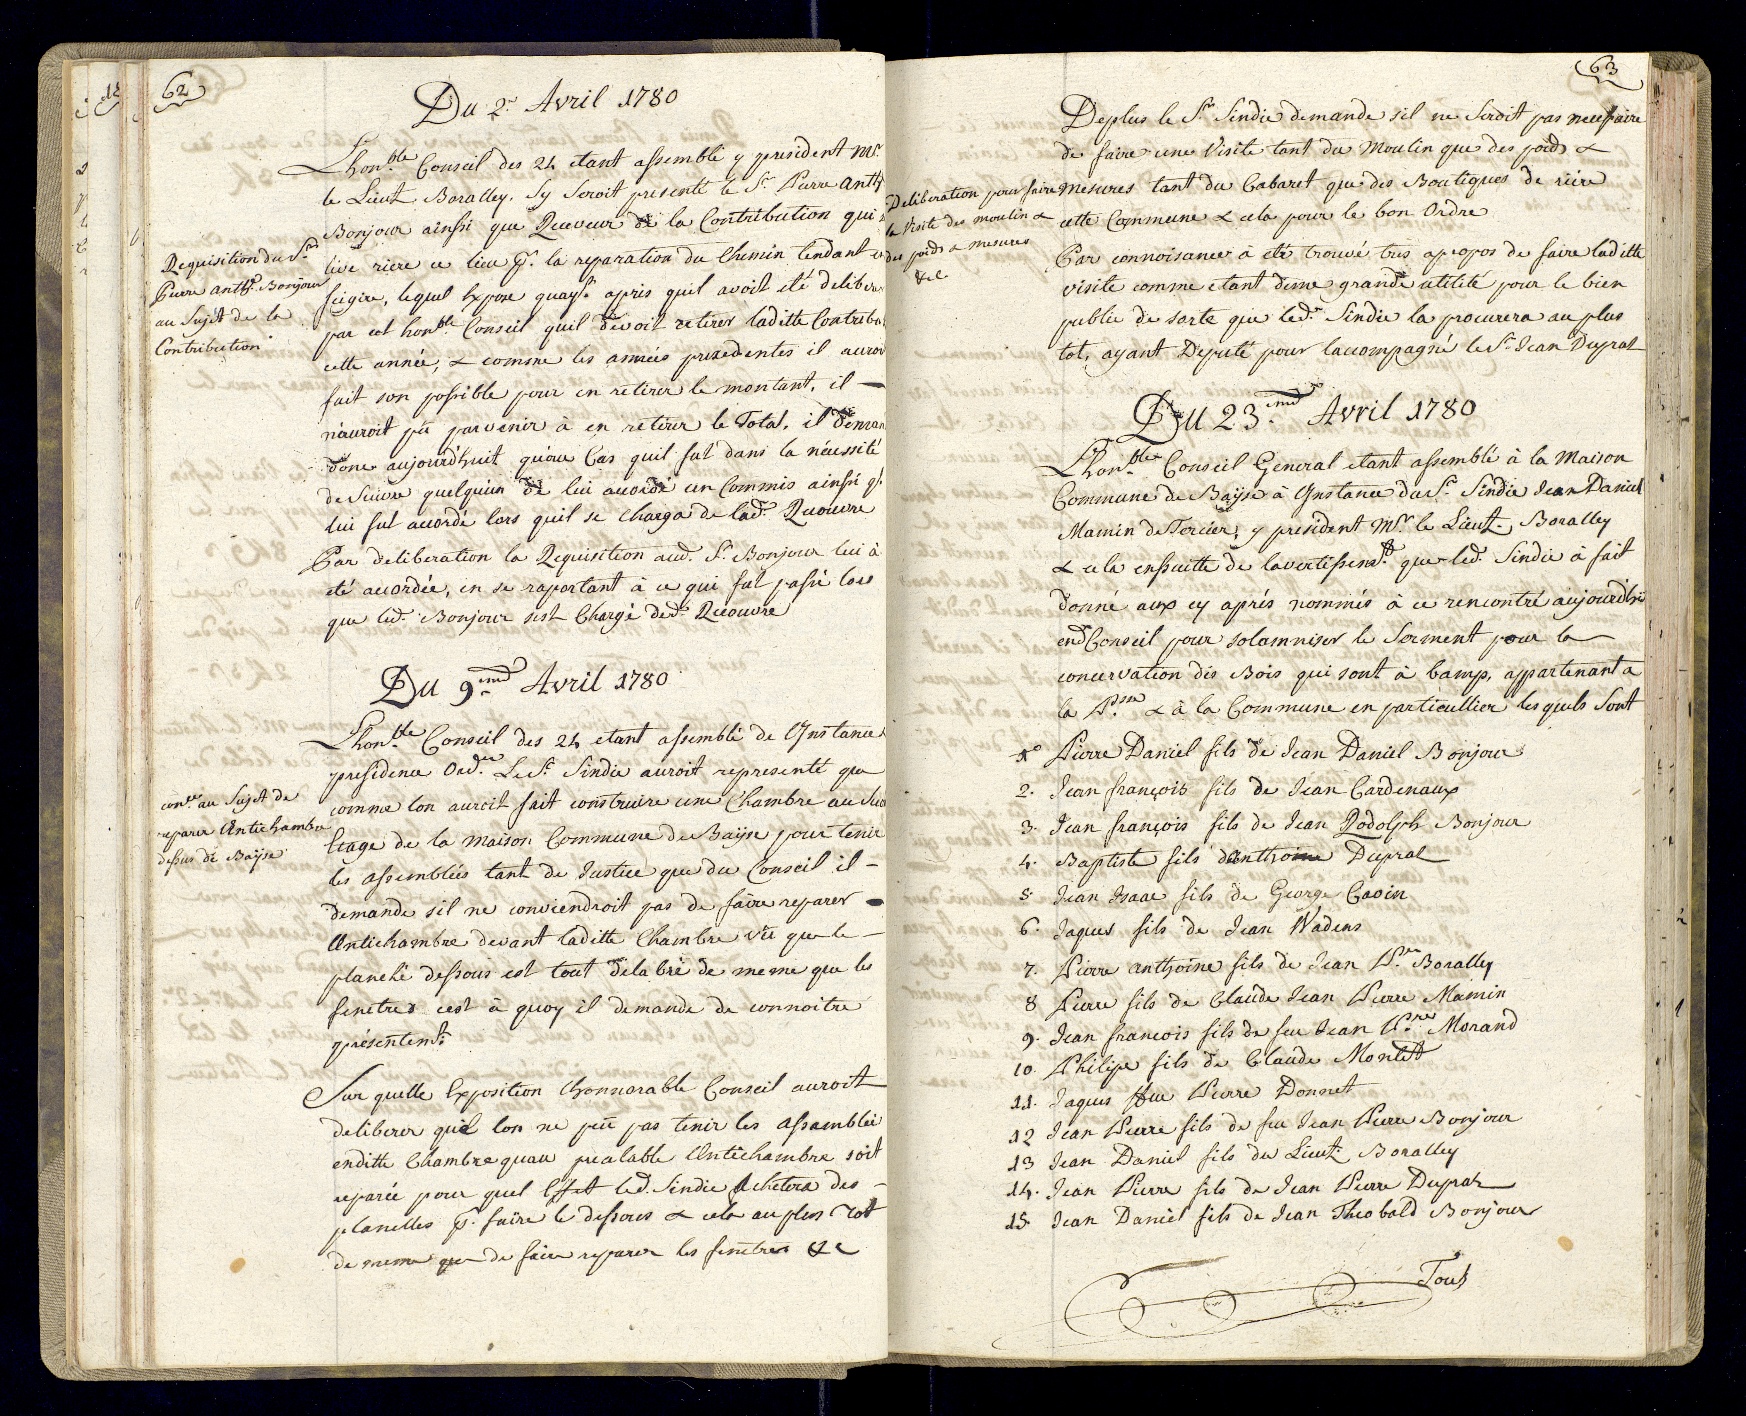 62
Du 2.e Avril 1780
Lhon.ble Conseil des 24 etant assemblé y president Mr.
le Lieut. Boralley. Sy Seroit presenté le Sr. Pierre Anth
Bonjour ainssi que Receveur de la Contribution qui
live riere ce lieu pr. la reparation du Chemin tendant
feigire, lequel Expose quays. après quil avoit été deliber
par cet honble Conseil quil devoit retirer laditte Contribu
cette année, & comme les années precedentes il auroi
fait son possible pour en retirer le montant, il —
nauroit pû parvenir à en retirer le Total, il deman
donc aujourdhuit quau Cas quil fut dans la nécessité
de Suivre quelquun de lui acordé un Commis ainssi q.
lui fut acordé lors quil se Chargea de lad. Recouvre
Par deliberation la Requisition aud. Sr. Bonjour lui à
eté acordée, en se raportant à ce qui fut passé lors
que led. Bonjour sest Chargé dud. Recouvre
Requisition du Sr.
Pierre Anth.e Bonjour
au Sujet de la
Contribution
Du 9.eme Avril 1780
Lhon.ble Conseil des 24 etant assemblé de Instance
presidence Ord.re Le Sr. Sindic auroit representé que
comme lon auroit fait construire une Chambre au Seco
Etage de la Maison Commune de Baÿse pour tenir
les assemblées tant de Justice que du Conseil il —
demande sil ne conviendroit pas de faire reparer —
Antichambre devant laditte Chambre vû que le —
planché dessous est tout délabré de meme que les
fenetres cest à quoy il demande de connoitre
présentemt.
con.ce au Sujet de
reparer Antichambre
dessus de Baÿse
Sur quelle Exposition lhonnorable Conseil auroit
deliberer que lon ne peû pas tenir les assemblée
enditte Chambre quau prealable Antichambre soit
reparée pour quel Effet led. Sindic Achetera des —
planelles pr. faire le dessous & cela au plus Tot
de meme que de faire reparer les fenetres &c
63
Deplus le Sr. Sindic demande sil ne Seroit pas necessaire
de faire une Visite tant du Moulin que des poids &
mesures tant du Cabaret que des Boutiques de riére
cette Commune & cela pour le bon Ordre
Deliberation pour faire
la Visite des moulin &
des poids & mesures
&c
Par connoisance à été trouvé tres apropos de faire laditte
visite comme etant dune grande utilité pour le bien
public de sorte que led. Sindic la procurera au plus
tot, ayant Député pour laccompagné le Sr. Jean Duprat
Du 23.eme Avril 1780
Lhon.ble Conseil General etant assemblé à la Maison
Commune de Baÿse à Instance du Sr. Sindic Jean Daniel
Mamin de Forcier, y president Mr. le Lieut. Boralley
& cela ensuitte de lavertissemt. que led. Sindic à fait
donné aux cy après nommés à ce rencontré aujourdhui
end Conseil pour solamniser le Serment pour la
concervation des Bois qui sont à bamp, appartenant a
la & à la Commune en particullier les quels Sont
1.o Pierre Daniel fils de Jean Daniel Bonjour
2. Jean françois fils de Jean Cardinaux
3. Jean françois fils de Jean Rodolph Bonjour
4. Baptiste fils dAnthoine Duprat
5 Jean Isaac fils de George Cavin
6. Jaques fils de Jean Wadens
7. Pierre anthoine fils de Jean P.re Boralley
8 Pierre fils de Claude Jean Pierre Mamin
9. Jean francois fils de feu Jean P.re Morand
10 Philipe fils de Claude Montet
11. Jaques feu Pierre Donnet
12 Jean Pierre fils de feu Jean Pierre Bonjour
13 Jean Daniel fils du Lieut. Boralley
14. Jean Pierre fils de Jean Pierre Duprat
15. Jean Daniel fils de Jean Theobald Bonjour
Tous